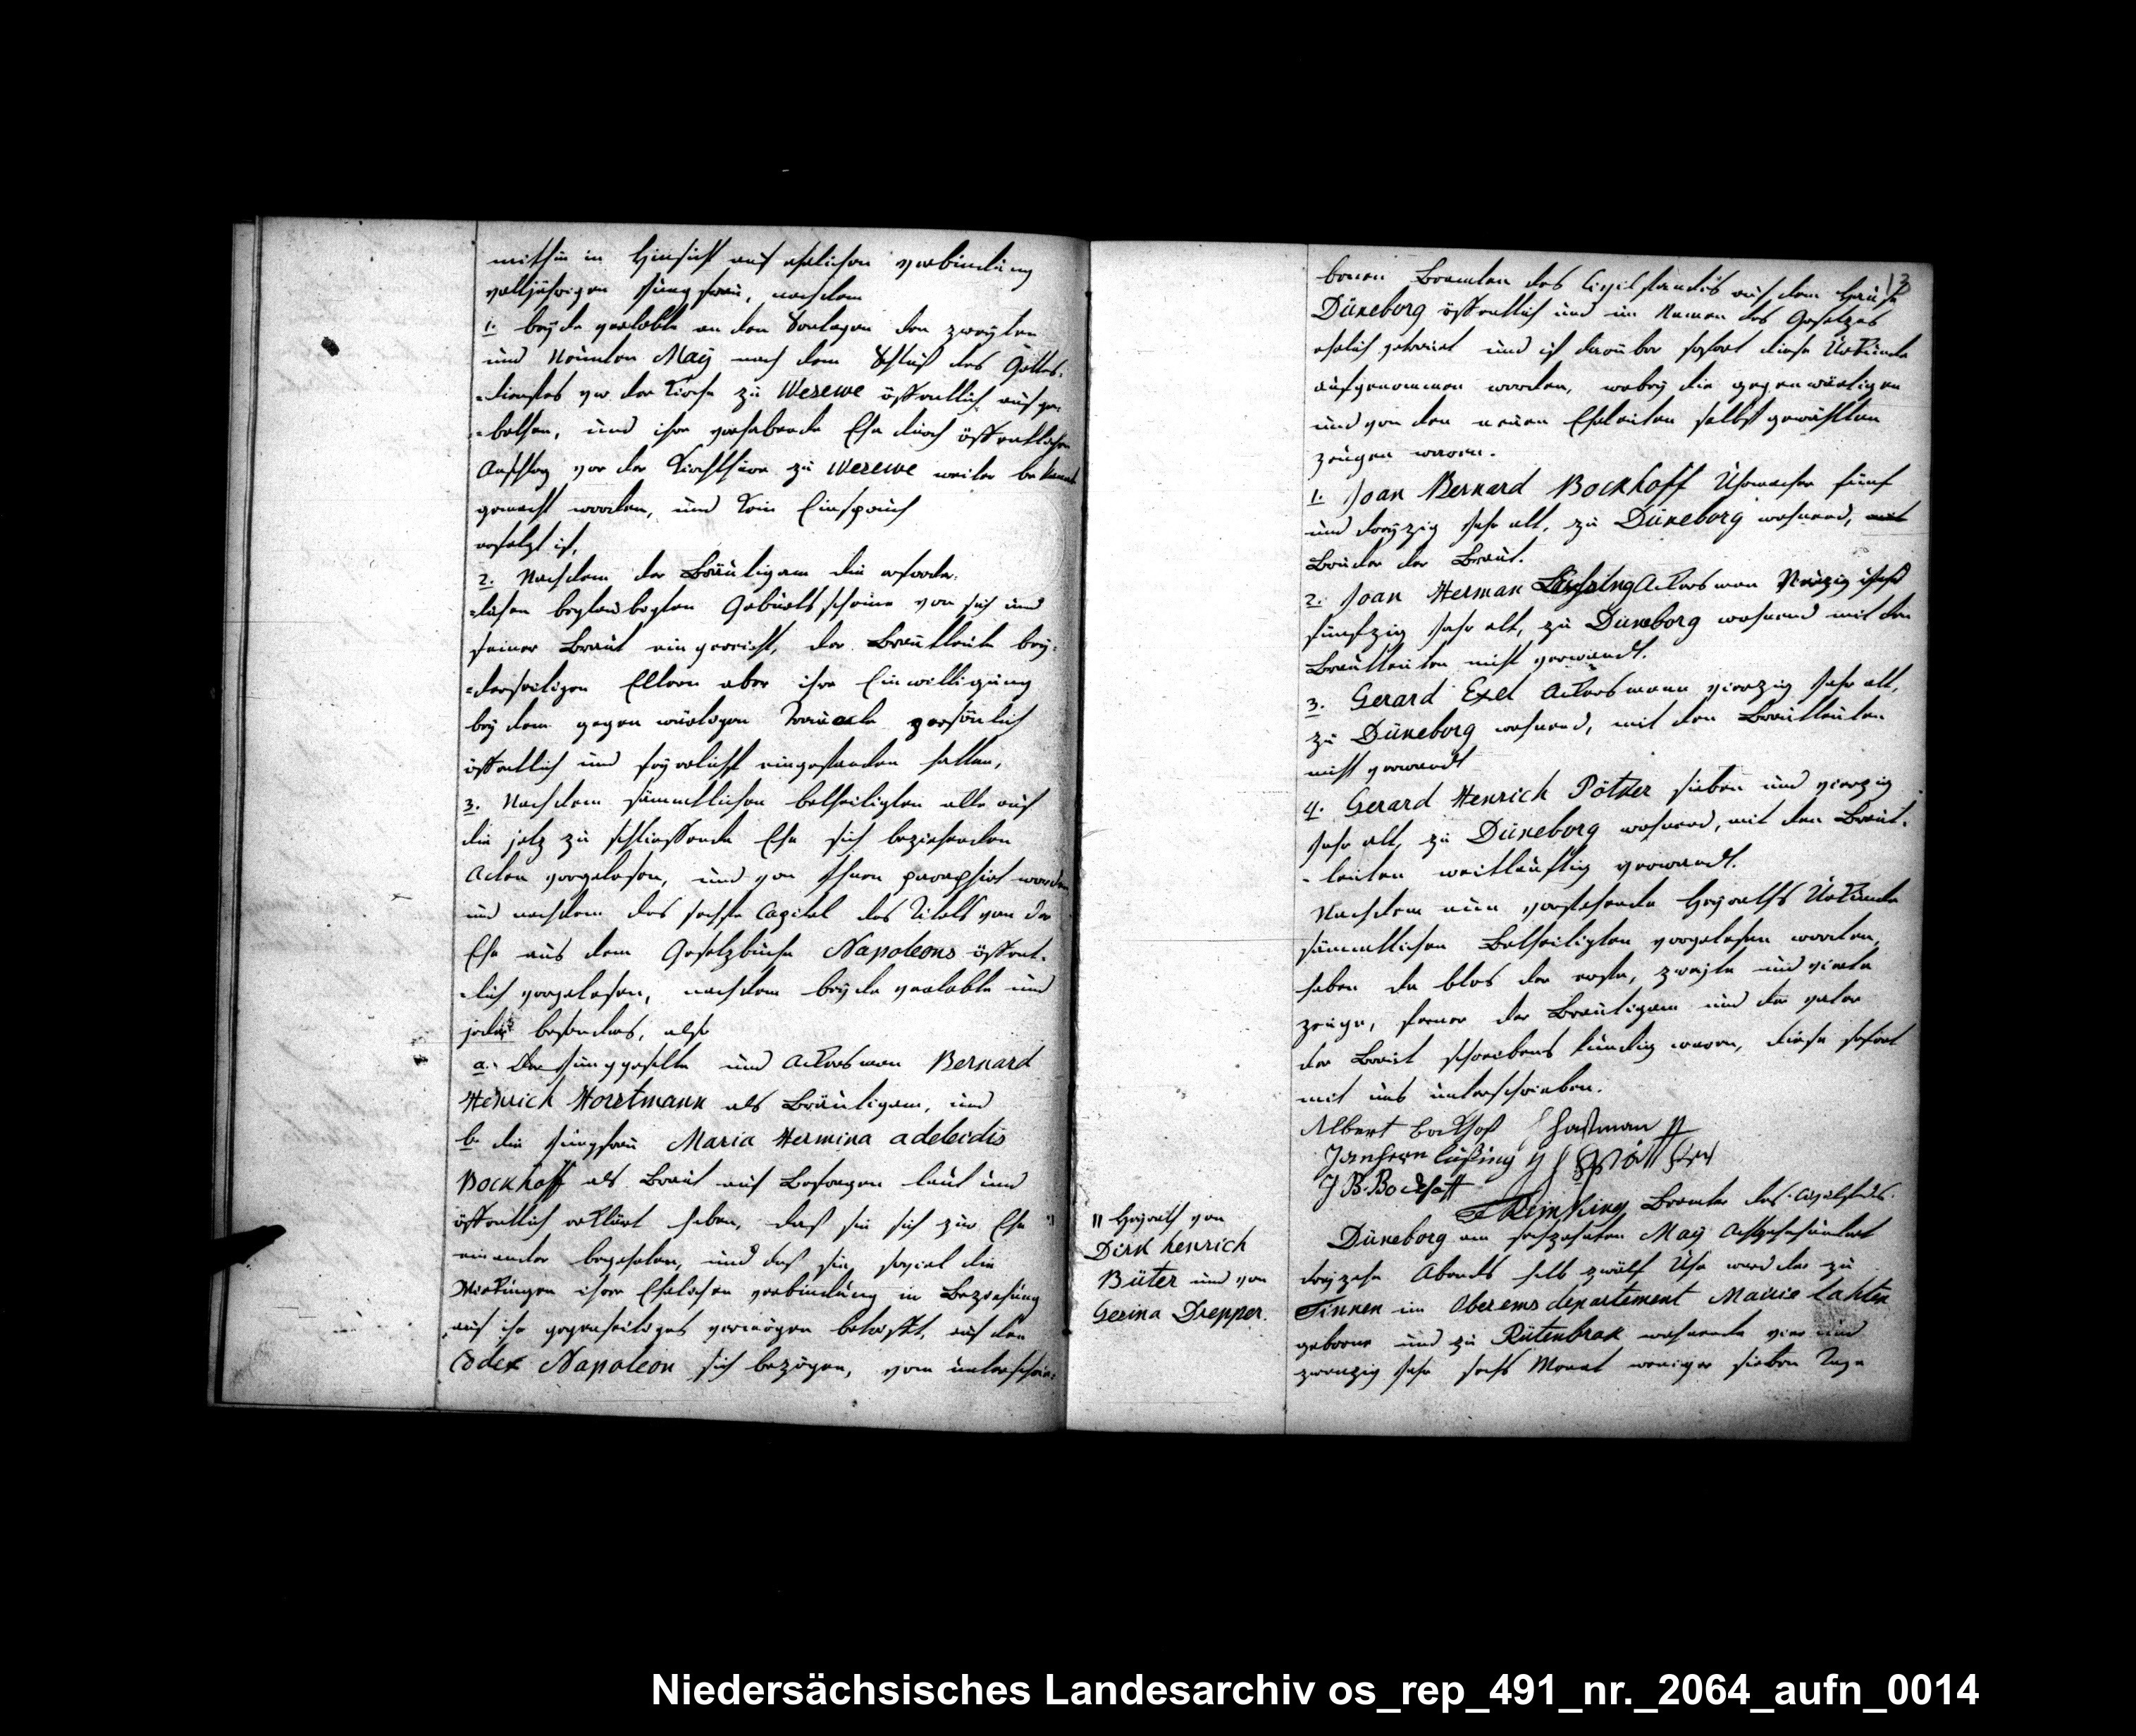 mithin in Hinsicht auf ehelichen verbindung
volljährigen Jungfrau, nachdem
1. beyde verlobte an den Sontagen den zweyten
und Neunten May nach dem Schluß des Gottes-
-dienstes vor der Kirche zu Wesewe öffentlich aufge-
-bothen, und ihre vorhabende Ehe durch öffentlichen
Anschlag vor der Kirchthüre zu Wesewe weiter bekannt
gemacht worden, und kein Einspruch
erfolgt ist,
2. Nachdem der Bräutigam die erforder-
-lichen beglaubigten Geburtsscheine von sich und
seiner Braut eingereicht, der Brautleute bey-
-derseitigen Eltern aber ihre Einwilligung
bey dem gegenwärtigen persönlich
öffentlich und feyerlichst eingestanden hatten,
3. Nachdem sämmtlichen betheiligten alle auf
die jetz zu schliessende Ehe sich beziehenden
Acten vorgelesen, und von Ihnen paraphirt worden
und nachdem das sechste Capitel des Titels von der
Ehe aus dem Gesetzbuche Napoleons öffent-
-lich vorgelesen, nachdem beyde verlobte und
jeder besonders, also
a. Der Junggeselle und Ackersman Bernard
Henrich Horstmann als Bräutigam, und
b. die Jungfrau Maria Hermina adeleidis
Bockhoff als Braut auf Befragen laut und
öffentlich erklärt haben, daß sie sich zur Ehe
einander begehrten, und daß sie, soviel die
Wirkungen ihrer Ehelichen verbindung in Beziehung
auf ihr gegenseitiges vermögen betrifft, auf den
Codex Napoleon sich bezögen, vom unterschrie-
13
benen Beamten des Civilstandes auf dem Hause
Düneborg öffentlich und im Namen des Gesetzes
ehelich getrauet und ist darüber sofort diese Urkunde
aufgenommen worden, wobey die gegenwärtigen
und von den neuen Eheleuten selbst gewählten
zeugen waren.
1. Joan Bernard Bockhoff Uhrmacher fünf
und dreyzig Jahr alt, zu Düneborg wohnend,
Bruder der Braut.
2. Joan Herman Ackersman
fünfzig Jahr alt, zu Düneborg wohnend mit den
Brautleuten nicht verwandt.
3. Gerard Exel Ackersmann vierzig Jahr alt,
zu Düneborg wohnend, mit den Brautleuten
nicht verwandt
4. Gerard Henrich Pötker sieben und vierzig
Jahr alt, zu Düneborg wohnend, mit den Braut-
-leuten weitläuftig verwandt.
Nachdem nun vorstehende Heyraths Urkunde
sämmtlichen Betheiligten vorgelesen worden,
haben da blos der erste, zweyte und vierte
zeuge, ferner der Bräutigam und der vater
der Braut schreibens kündig waren, diese sofort
mit uns unterschrieben.
Albert Bockhof
Jan herm lüßing
J B Bockhoff
Beamter des Civilstands.
Heyrath von
Dirk henrich
Büter und von
Gesina Drepper.
Düneborg am sechzehnten May Achtzehnhundert
dreyzehn Abends halb zwölf Uhr ward der zu
Tinnen im Oberemsdepartement Mairie lahten
geborne und zu Rütenbrok wohnende vier und
zwanzig Jahr sechs Monat weniger sieben Tage
Niedersächsisches Landesarchiv os_rep_491_nr._2064_aufn_0014